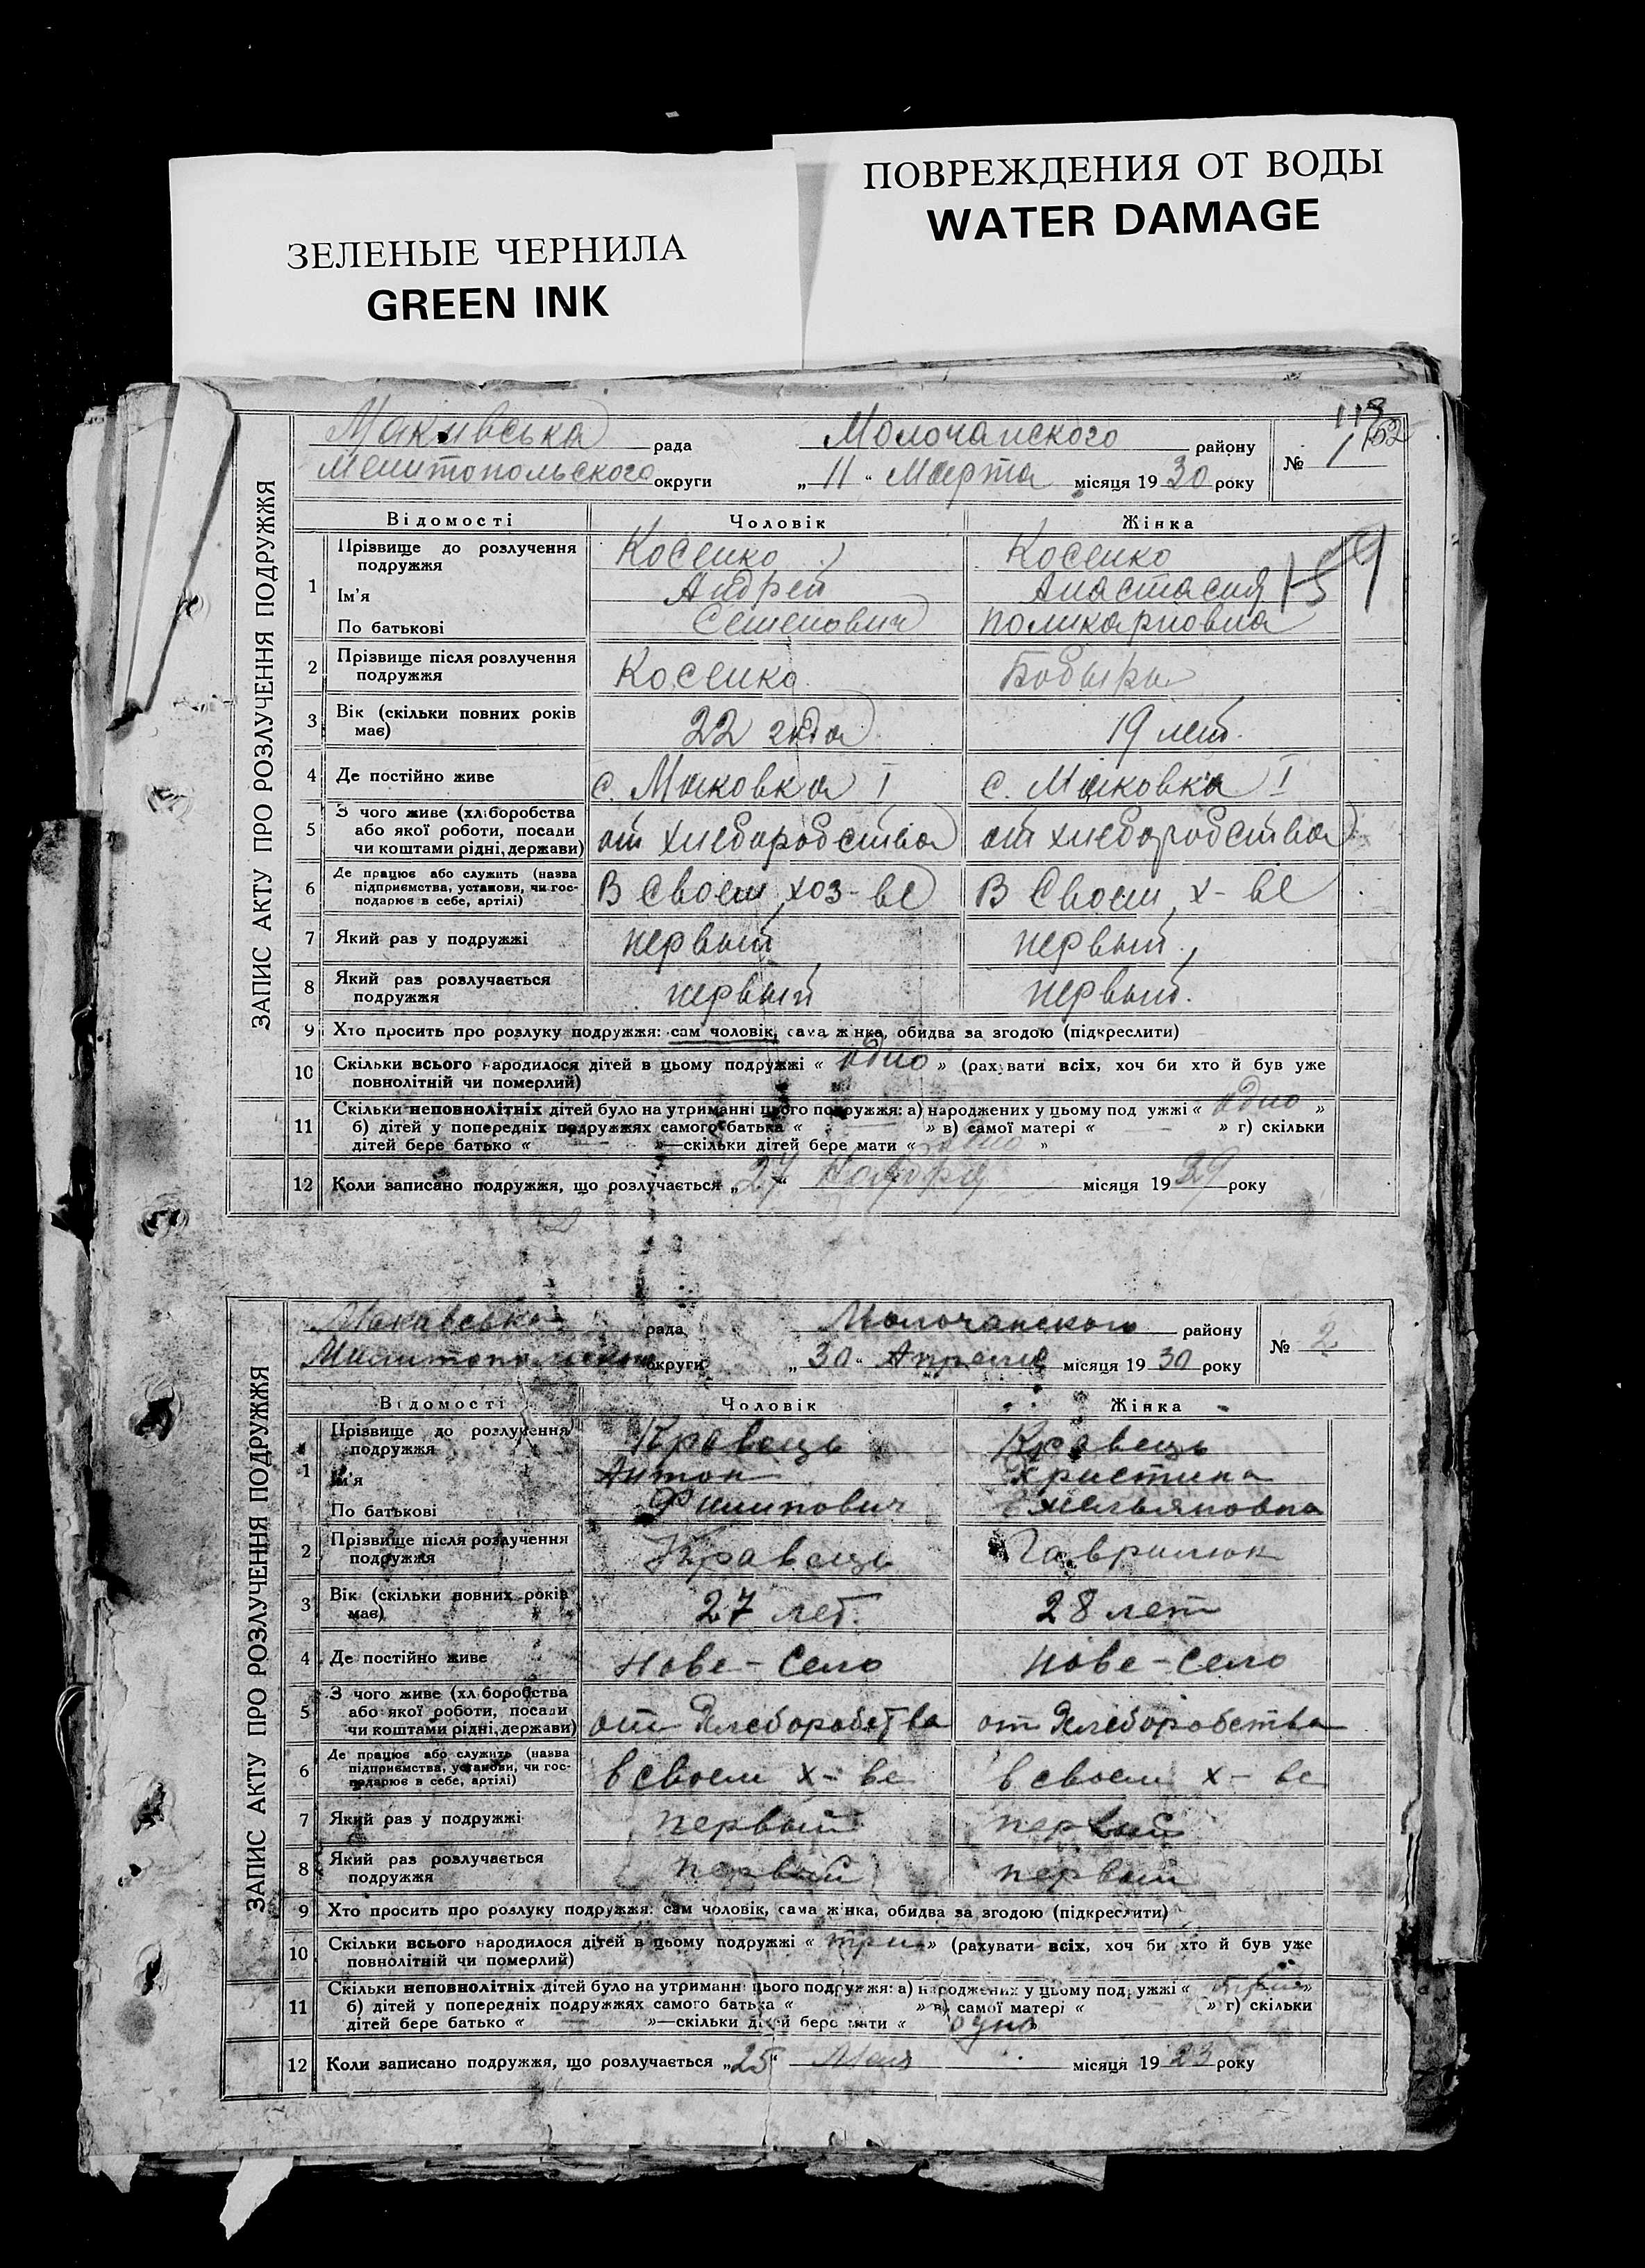 ПОВРЕЖДЕНИЯ ОТ ВОДЫ
WATER DAMAGE
ЗЕЛЕНЫЕ ЧЕРНИЛА
GREEN INK
ЗАПИС АКТУ ПРО РОЗЛУЧЕННЯ ПОДРУЖЖЯ
118
Маківська рада Молочанского району № 1
Мелитопольского округи „ 11 “ Марта місяця 1930 року
Відомості Чоловік Жінка
1 Прізвище до розлучення подружжя Косенко Косенко
159
Ім'я Андрей Анастасия
По батькові Семенович Поликарповна
2 Прізвище після розлучення подружжя Косенко Бобырь
3 Вік (скільки повних років має) 22 года 19 лет.
4 Де постійно живе с. Маковка I с. Маковка I
5 З чого живе (хліборобства або якої роботи, посади чи коштами рідні, держави) от хлеборобства от хлеборобства
6 Де працює або служить (назва підприємства, установи, чи господарює в себе, артілі) В своем хоз-ве В своем х-ве
7 Який раз у подружжі первый первый
8 Який раз розлучається подружжя первый первый.
9 Хто просить про розлуку подружжя: сам чоловік, сама жінка, обидва за згодою (підкреслити)
10 Скільки всього народилося дітей в цьому подружжі « одно » (рахувати всіх, хоч би хто й був уже
повнолітній чи померлий)
11 Скільки неповнолітніх дітей було на утриманні цього подружжя: а) народжених у цьому подружжі « одно »
б) дітей у попередніх подружжях самого батька « — » в) самої матері « — » г) скільки
дітей бере батько « — »—скільки дітей бере мати « одно »
12 Коли записано подружжя, що розлучається „ 27 “ місяця 1929 року
ЗАПИС АКТУ ПРО РОЗЛУЧЕННЯ ПОДРУЖЖЯ
Маківська рада Молочанского району № 2
Мелитопольского округи „ 30 “ Апреля місяця 1930 року
Відомості Чоловік Жінка
1 Прізвище до розлучення подружжя Кравець Кравець
Ім'я Антон Христина
По батькові Филипович Емельяновна
2 Прізвище після розлучення подружжя Кравець Гаврилюк
3 Вік (скільки повних років має) 27 лет. 28 лет
4 Де постійно живе Нове-Село Нове-Село
5 З чого живе (хліборобства або якої роботи, посади чи коштами рідні, держави) от хлеборобства от хлеборобства
6 Де працює або служить (назва підприємства, установи, чи господарює в себе, артілі) в своем х-ве в своем х-ве
7 Який раз у подружжі первый первый
8 Який раз розлучається подружжя первый первый
9 Хто просить про розлуку подружжя: сам чоловік, сама жінка, обидва за згодою (підкреслити)
10 Скільки всього народилося дітей в цьому подружжі « три » (рахувати всіх, хоч би хто й був уже
повнолітній чи померлий)
11 Скільки неповнолітніх дітей було на утриманні цього подружжя: а) народжених у цьому подружжі « »
б) дітей у попередніх подружжях самого батька « » в) самої матері « » г) скільки
дітей бере батько « — »—скільки дітей бере мати « одно »
12 Коли записано подружжя, що розлучається „ 25 “ Мая місяця 1923 року